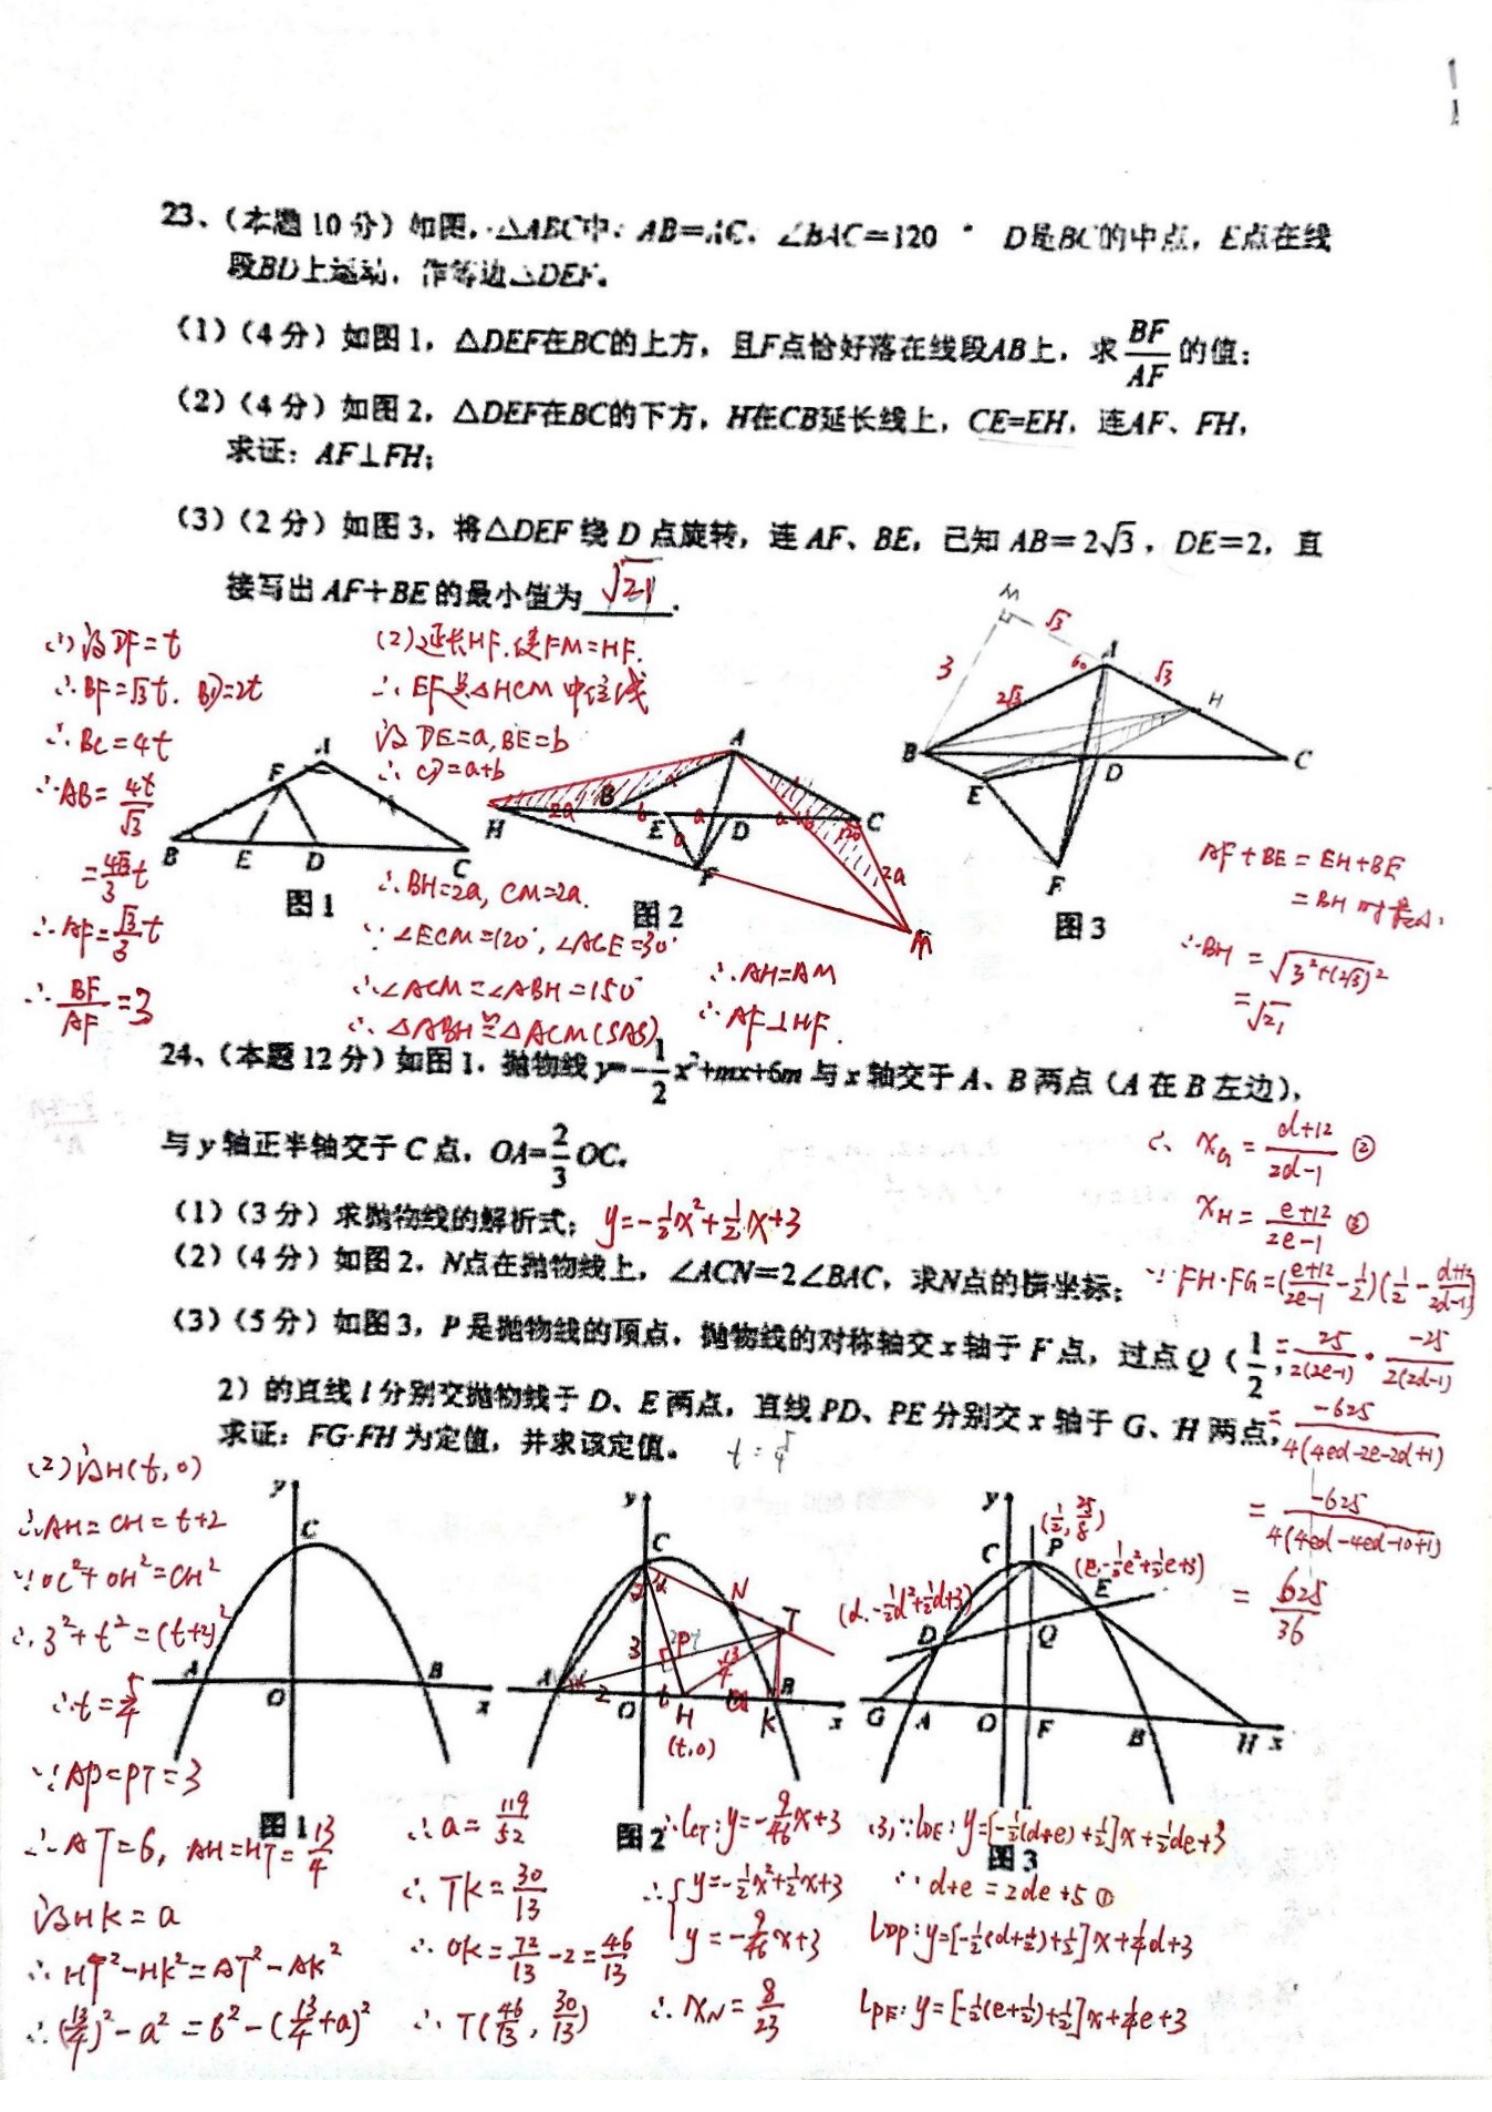 23、(本题10分) 如图, △ABC中, AB=AC, ∠BAC=120° D是BC的中点, E点在线
段BD上运动, 作等边△DEF。
(1)(4分) 如图1, △DEF在BC的上方, 且F点恰好落在线段AB上, 求 BF/AF 的值;
(2)(4分) 如图2, △DEF在BC的下方, H在CB延长线上, CE=EH, 连AF、FH,
求证: AF⊥FH;
(3)(2分) 如图3, 将△DEF绕D点旋转, 连AF、BE, 已知AB=2√3, DE=2, 直
接写出AF+BE的最小值为 √21 .
(1) 设DF=t
∴BF=√3t. BD=2t
∴BC=4t
∴AB=4t/√3
=4√3/3 t
∴AF=√3/3 t
∴BF/AF=3
(2)延长HF.使FM=HF.
∴EF是△HCM中位线
设DE=a, BE=b
∴CD=a+b
∴BH=2a, CM=2a.
∵∠ECM=120°, ∠ACE=30°
∴∠ACM=∠ABH=150°
∴△ABH≌△ACM(SAS)
∴AH=AM
∴AF⊥HF.
A F B E D C
图1
A H B E D C F M
2a b a a a+b 120° 2a
图2
M √3 A 60 √3 H 3 2√3 B D C E F
图3
AF+BE=EH+BE
=BH时最小.
∴BH=√3²+(2√3)²
=√21
24、(本题12分) 如图1, 抛物线y=-1/2x²+mx+6m与x轴交于A、B两点(A在B左边),
与y轴正半轴交于C点, OA=2/3OC.
(1)(3分) 求抛物线的解析式; y=-1/2x²+1/2x+3
(2)(4分) 如图2, N点在抛物线上, ∠ACN=2∠BAC, 求N点的横坐标;
(3)(5分) 如图3, P是抛物线的顶点, 抛物线的对称轴交x轴于F点, 过点Q(1/2,
2)的直线l分别交抛物线于D、E两点, 直线PD、PE分别交x轴于G、H两点,
求证: FG·FH为定值, 并求该定值。 t=5/4
∴ x_G=(d+12)/(2d-1) ②
x_H=(e+12)/(2e-1) ③
∵FH·FG=((e+12)/(2e-1)-1/2)(1/2-(d+12)/(2d-1))
=25/2(2e-1)·-25/2(2d-1)
=-625/4(4ed-2e-2d+1)
=-625/4(4ed-4ed-10+1)
=625/36
(2)设H(t,0)
∴AH=CH=t+2
∵OC²+OH²=CH²
∴3²+t²=(t+2)²
∴t=5/4
∵AP=PT=3
∴AT=6, AH=HT=13/4
设HK=a
∴HT²-HK²=AT²-AK²
∴(13/4)²-a²=6²-(13/4+a)²
y C A O B x
图1
y C N T P A O H K B x
3 2 t 13/4 a
(t,0)
图2
y C P D E Q G A O F B H x
(1/2, 25/8)
(e,-1/2e²+1/2e+3)
(d,-1/2d²+1/2d+3)
图3
∴a=119/52
∴TK=30/13
∴OK=72/13-2=46/13
∴T(46/13, 30/13)
∴l_CT: y=-9/46x+3
∴{y=-1/2x²+1/2x+3
y=-9/46x+3
∴x_N=8/23
(3)∵l_DE: y=[-1/2(d+e)+1/2]x+1/2de+3
∴d+e=2de+5 ①
l_DP: y=[-1/2(d+1/2)+1/2]x+1/4d+3
l_PE: y=[-1/2(e+1/2)+1/2]x+1/4e+3